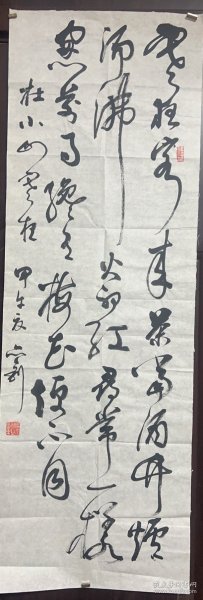 寒夜客来茶當酒竹爐
湯沸火初紅尋常一樣
窗前月纔有梅花便不同
杜小山寒夜 甲午夏